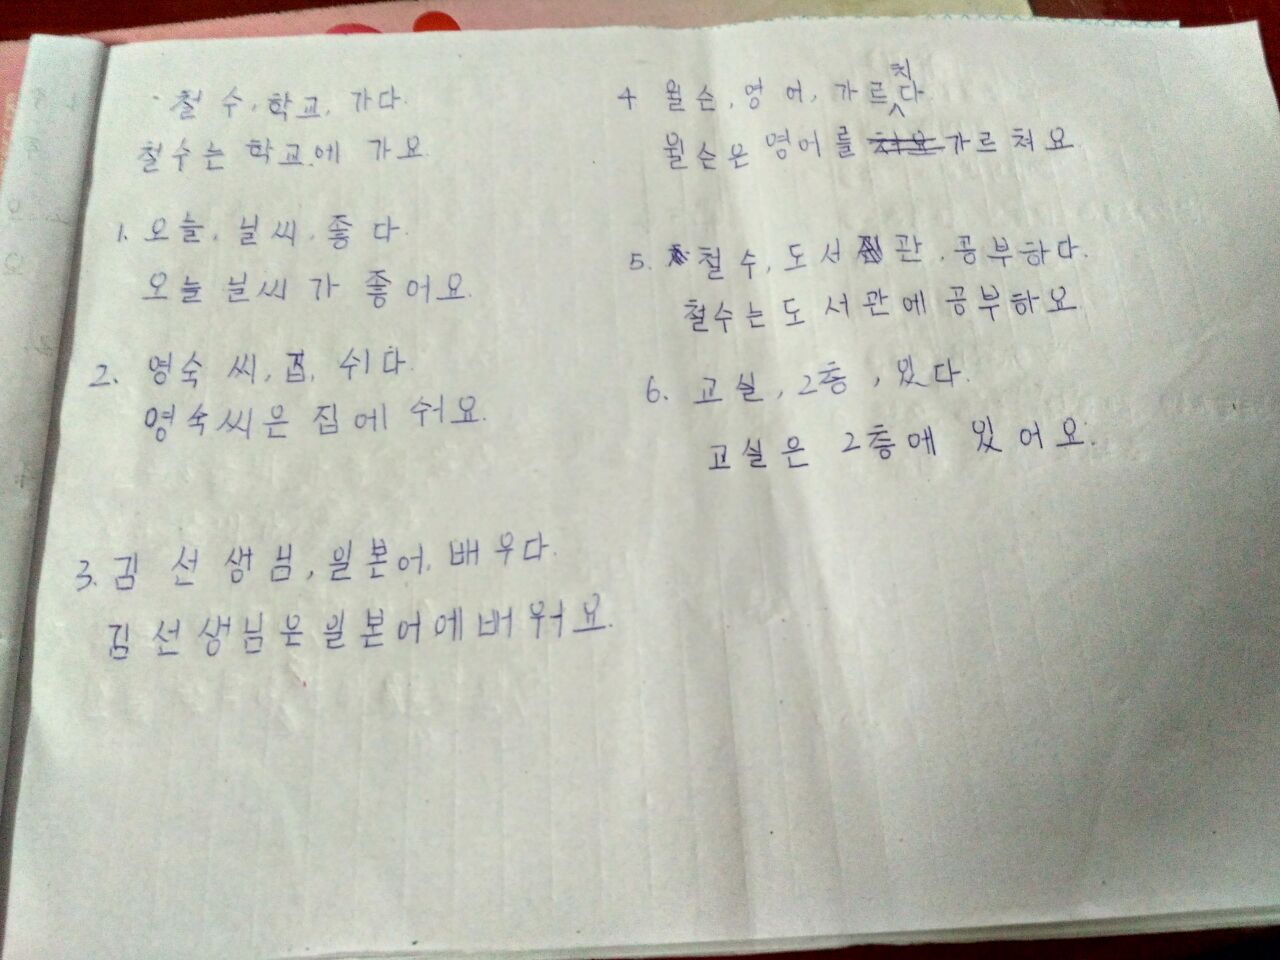 철수, 학교, 가다.
철수는 학교에 가요.
1. 오늘, 날씨, 좋다.
오늘 날씨가 좋어요.
2. 영숙 씨, 집, 쉬다.
영숙씨은 집에 쉬요.
3. 김 선생님, 일본어, 배우다.
김 선생님은 일본어에 배워요.
4 윌슨, 영어, 가르치다.
윌슨은 영어를 가르쳐요
5. 철수, 도서관, 공부하다.
철수는 도서관에 공부하요
6. 교실, 2층, 있다.
교실은 2층에 있어요.